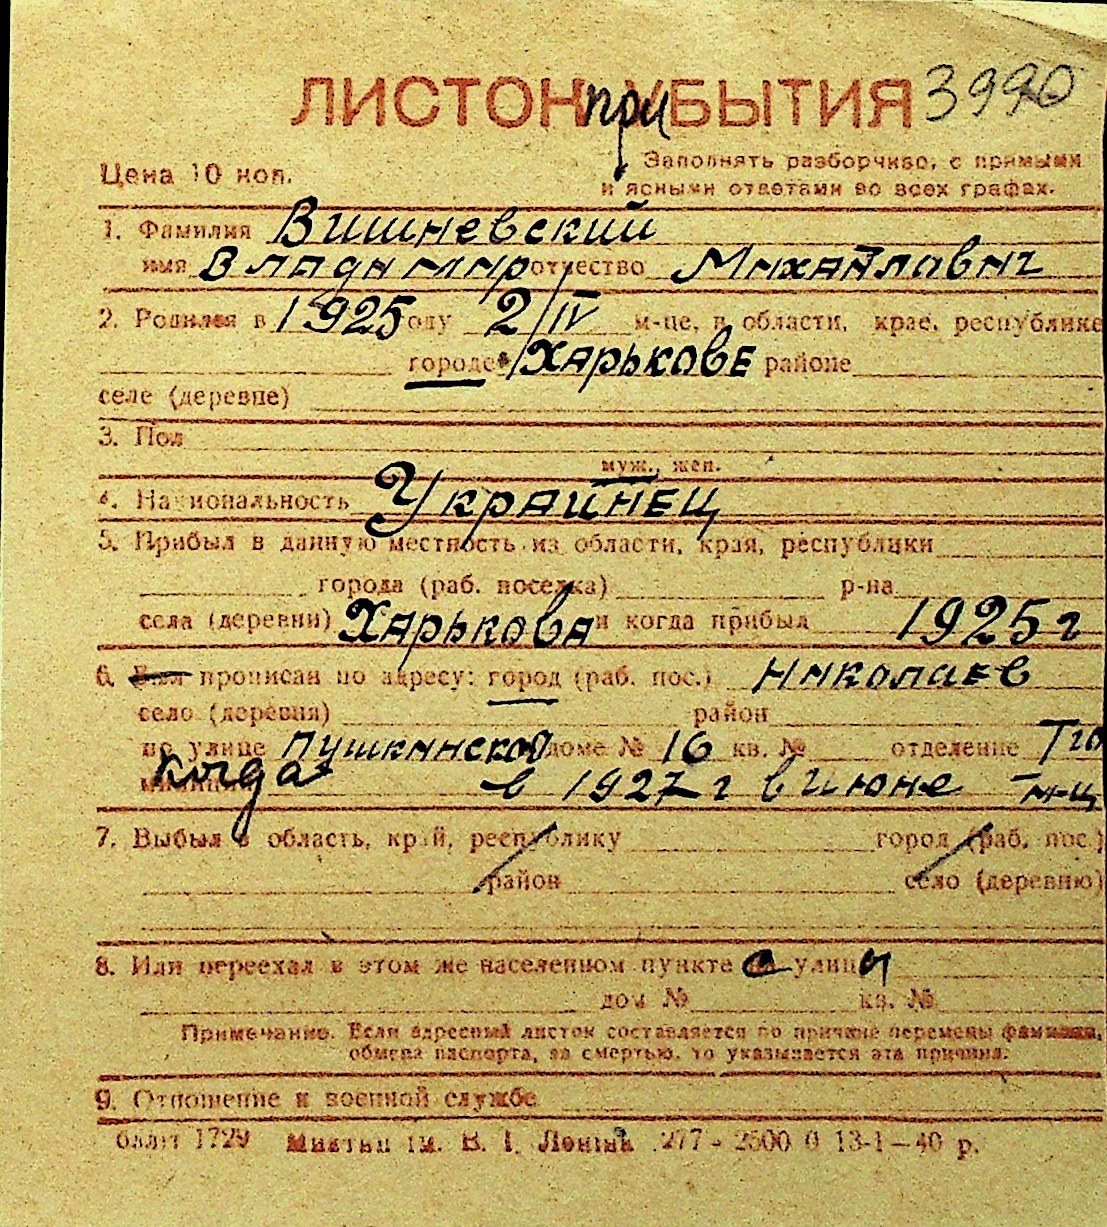 ЛИСТОК при УБЫТИЯ 3990
Цена 10 коп.
Заполнять разборчиво, с прямыми
и ясными ответами во всех графах.
1. Фамилия Вишневский
имя Владимир отчество Михайлович
2. Родился в 1925 году 2/IV м-це, в области, крае, республике
городе Харькове районе
селе (деревне)
3. Пол
муж., жен.
4. Национальность Украинец
5. Прибыл в данную местность из области, края, республики
города (раб. поселка) р-на
села (деревни) Харькова и когда прибыл 1925 г
6. Был прописан по адресу: город (раб. пос.) Николаев
село (деревня) район
по улице Пушкинской доме № 16 кв. № отделение
когда в 1927 г в июне м-ц
7. Выбыл в область, край, республику город (раб. пос.)
район село (деревню)
8. Или переехал в этом же населенном пункте с улицы
дом № кв. №
Примечание. Если адресный листок составляется по причине перемены фамилии,
обмена паспорта, за смертью, то указывается эта причина.
9. Отношение к военной службе
1729 ім. В. І. Леніна 277 - 2500 0 13-1-40 р.